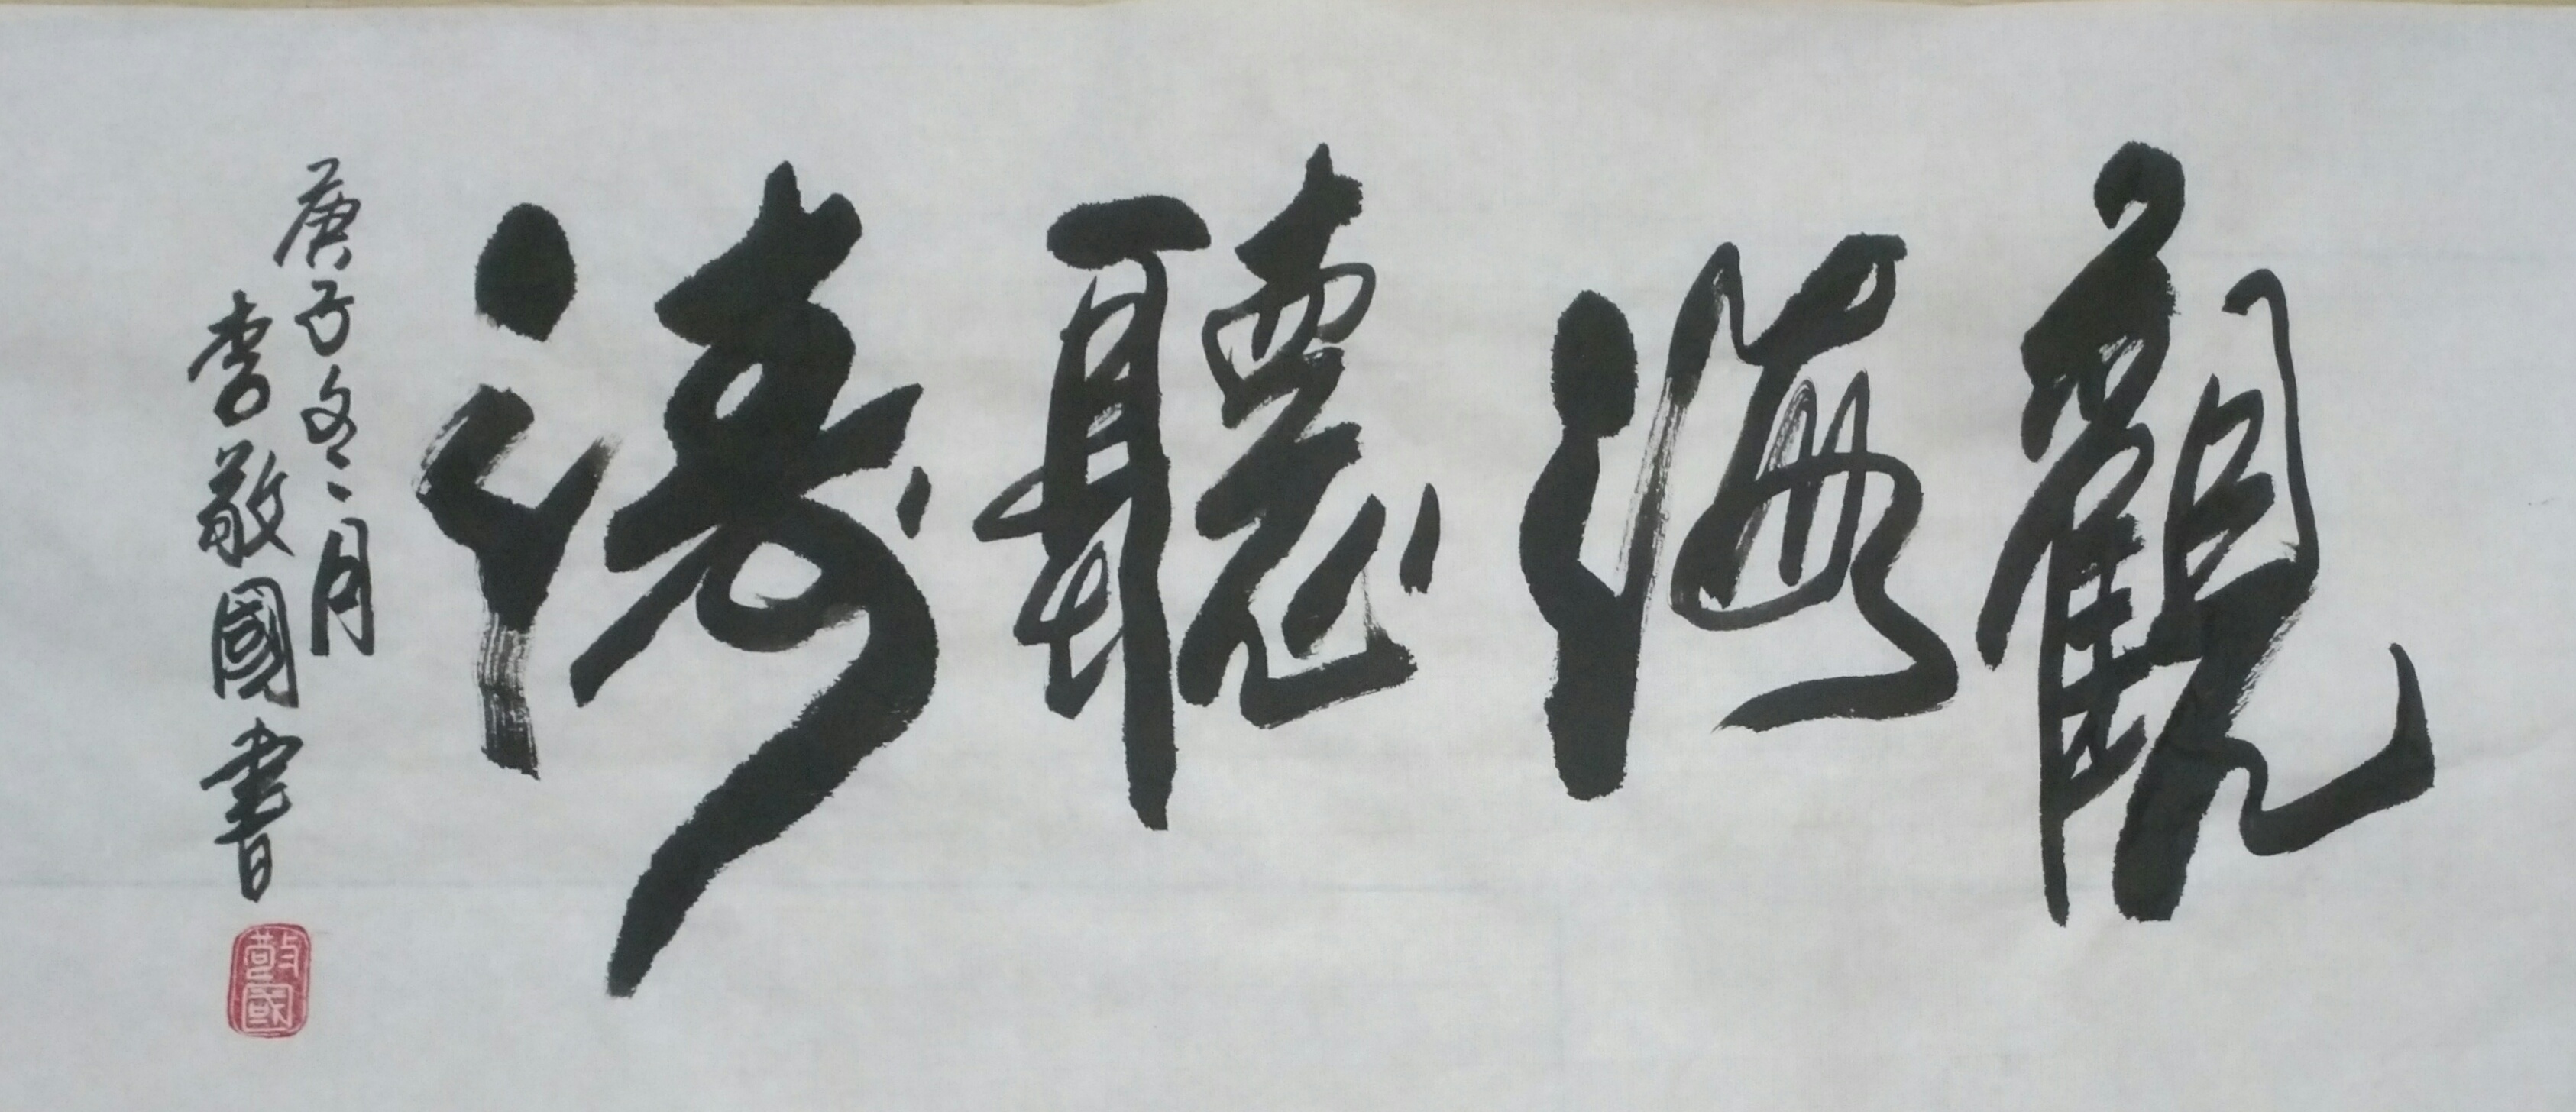 觀海聽濤
庚子冬月
李敬國書
敬國